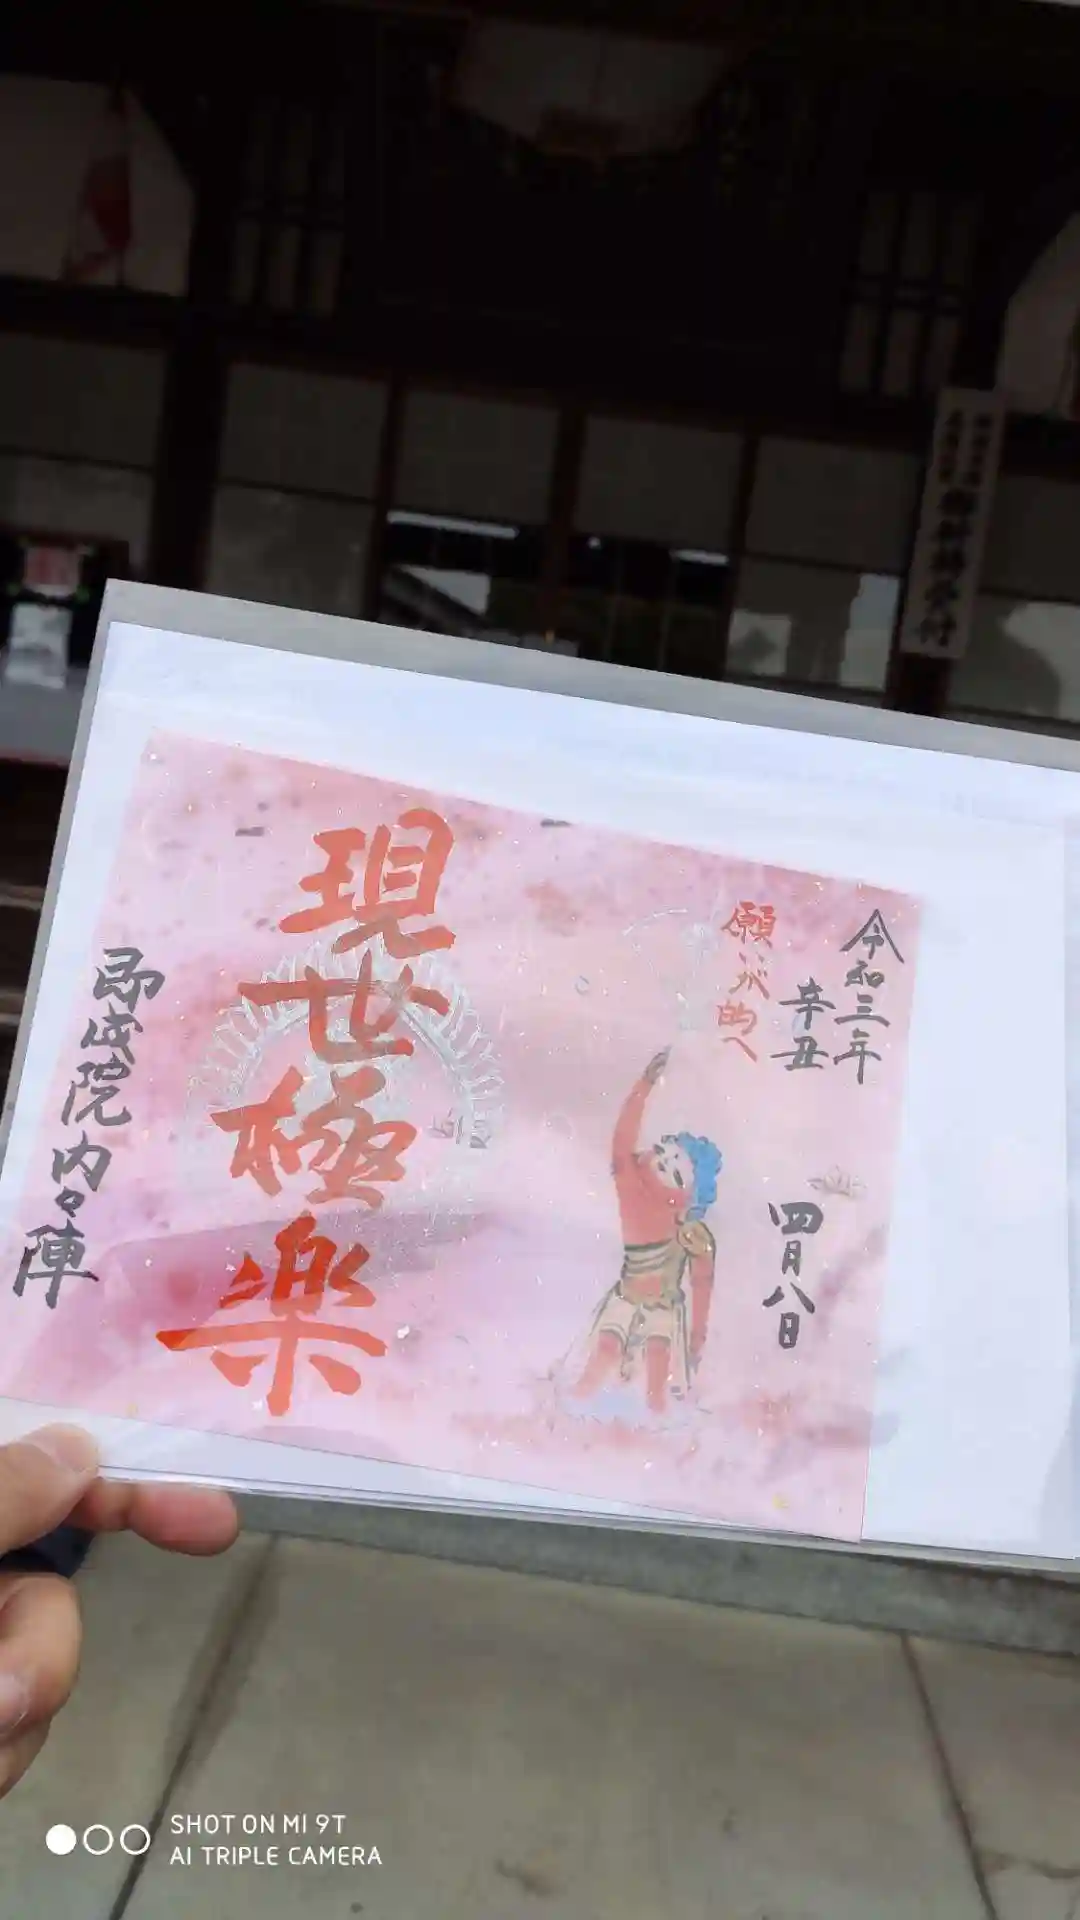 令和三年
辛丑
四月八日
願いが的へ
現世極楽
即成院内々陣
SHOT ON MI 9T
AI TRIPLE CAMERA